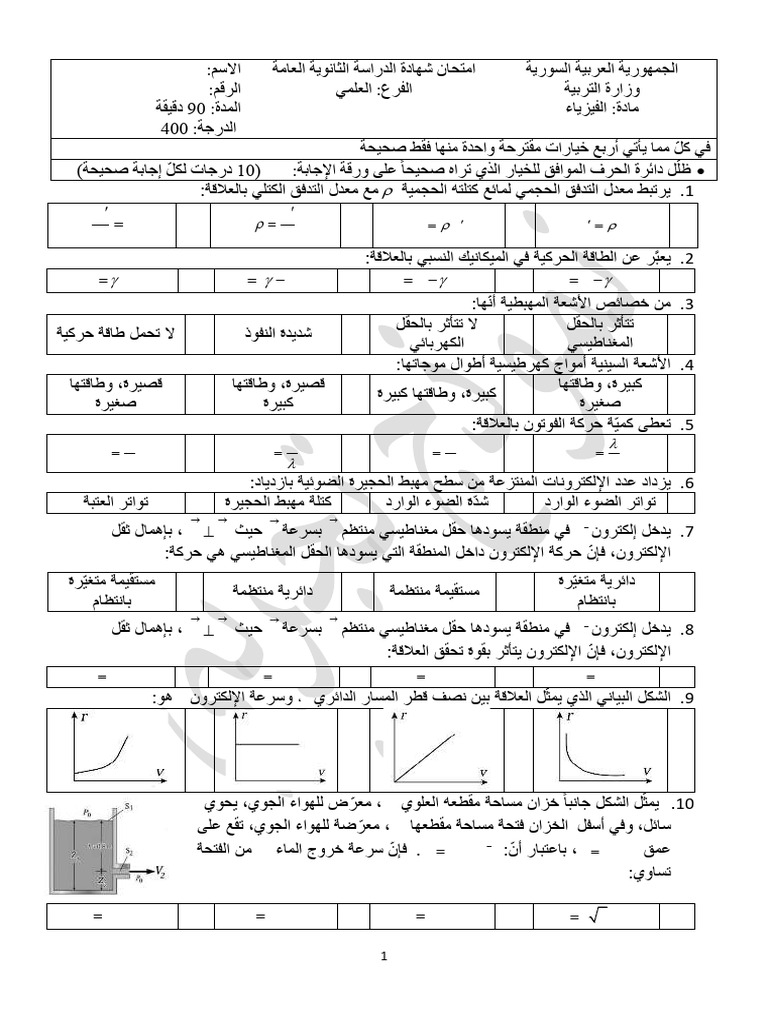 الجمهورية العربية السورية امتحان شهادة الدراسة الثانوية العامة الاسم:
وزارة التربية الفرع: العلمي الرقم:
مادة: الفيزياء المدة: 90 دقيقة
الدرجة: 400
في كلّ مما يأتي أربع خيارات مقترحة واحدة منها فقط صحيحة
• ظلّل دائرة الحرف الموافق للخيار الذي تراه صحيحاً على ورقة الإجابة: (10 درجات لكلّ إجابة صحيحة)
1. يرتبط معدل التدفق الحجمي لمائع كتلته الحجمية ρ مع معدل التدفق الكتلي بالعلاقة:
′ = ρ
= ρ ′
ρ = ′ —
′ — =
2. يعبَّر عن الطاقة الحركية في الميكانيك النسبي بالعلاقة:
= − γ
= − γ
= γ −
= γ
3. من خصائص الأشعة المهبطية أنّها:
تتأثر بالحقل المغناطيسي
لا تتأثر بالحقل الكهربائي
شديدة النفوذ
لا تحمل طاقة حركية
4. الأشعة السينية أمواج كهرطيسية أطوال موجاتها:
كبيرة، وطاقتها صغيرة
كبيرة، وطاقتها كبيرة
قصيرة، وطاقتها كبيرة
قصيرة، وطاقتها صغيرة
5. تعطى كميّة حركة الفوتون بالعلاقة:
= λ —
= —
= — λ
= —
6. يزداد عدد الإلكترونات المنتزعة من سطح مهبط الحجيرة الضوئية بازدياد:
تواتر الضوء الوارد
شدّة الضوء الوارد
كتلة مهبط الحجيرة
تواتر العتبة
7. يدخل إلكترون − في منطقة يسودها حقل مغناطيسي منتظم → بسرعة → حيث → ⊥ → ، بإهمال ثقل
الإلكترون، فإنّ حركة الإلكترون داخل المنطقة التي يسودها الحقل المغناطيسي هي حركة:
دائرية متغيّرة بانتظام
مستقيمة منتظمة
دائرية منتظمة
مستقيمة متغيّرة بانتظام
8. يدخل إلكترون − في منطقة يسودها حقل مغناطيسي منتظم → بسرعة → حيث → ⊥ → ، بإهمال ثقل
الإلكترون، فإنّ الإلكترون يتأثر بقوة تحقق العلاقة:
=
=
=
=
9. الشكل البياني الذي يمثّل العلاقة بين نصف قطر المسار الدائري . وسرعة الإلكترون هو:
r v
r v
r v
r v
10. يمثّل الشكل جانباً خزان مساحة مقطعه العلوي ، معرّض للهواء الجوي، يحوي
سائل، وفي أسفل الخزان فتحة مساحة مقطعها ، معرّضة للهواء الجوي، تقع على
عمق = ، باعتبار أنّ: − = . فإنّ سرعة خروج الماء من الفتحة
تساوي:
P₀ S₁
S₂
V₂
P₀
= √
=
=
=
1
نموذج تجريبي